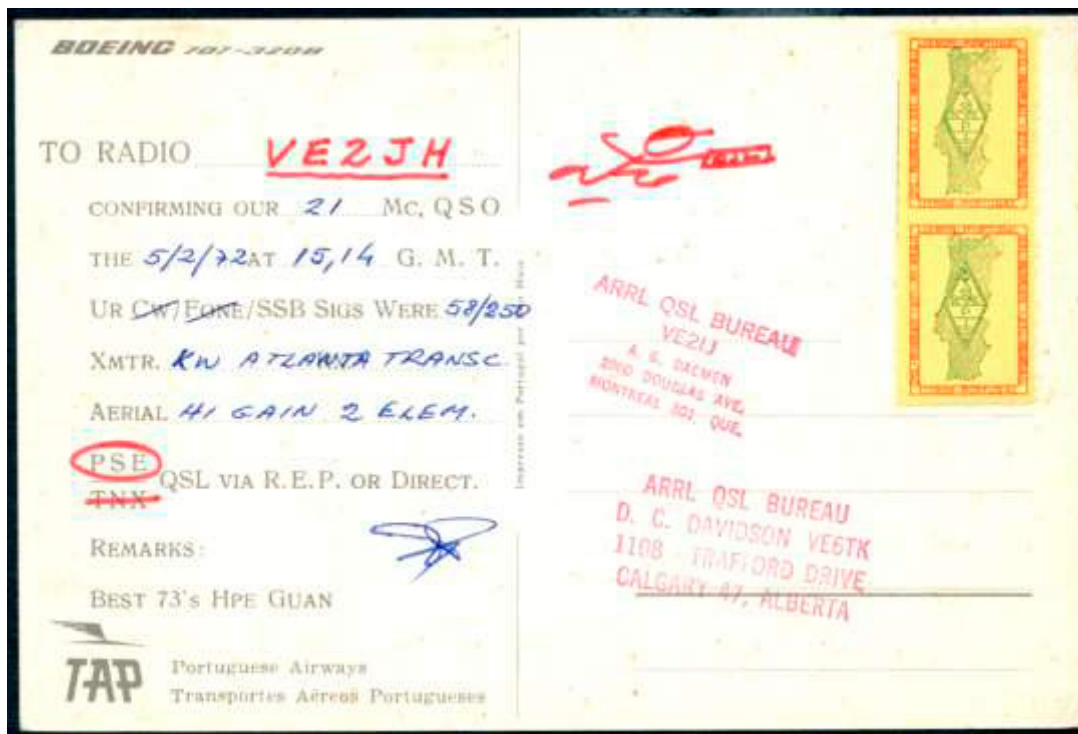 BOEING 707-320B
TO RADIO VE2JH
CONFIRMING OUR 21 MC, QSO
THE 5/2/72 AT 15,14 G. M. T.
UR CW/FONE/SSB SIGS WERE 58/250
XMTR. KW ATLANTA TRANSC.
AERIAL HI GAIN 2 ELEM.
PSE
TNX
QSL VIA R.E.P. OR DIRECT.
REMARKS:
BEST 73's HPE GUAN
TAP
Portuguese Airways
Transportes Aéreos Portugueses
Impresso em Portugal por
ARRL QSL BUREAU
VE2IJ
2000 DOUGLAS AVE.
MONTREAL QUE.
ARRL QSL BUREAU
D. C. DAVIDSON VE6TK
1108 TRAFFORD DRIVE
CALGARY 47, ALBERTA